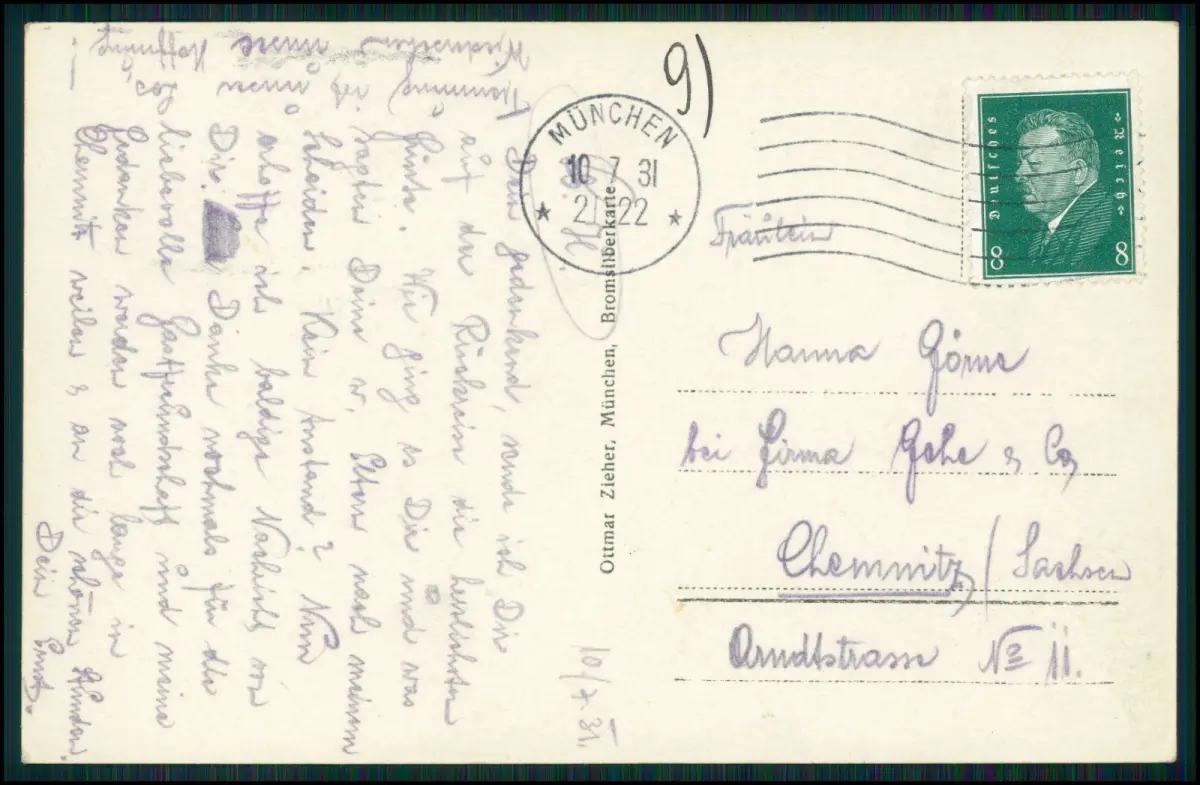 9)
MÜNCHEN
10 7 31
21-22
Deutsches Reich
8 8
Fräulein
Hanna Görne
bei Firma Gehe & Co
Chemnitz/Sachsen
Arndtstrasse No 11.
Ottmar Zieher, München, Bromsilberkarte
10/7. 31.
Dein gedenkend, sende ich Dir
auf der Rückreise die herzlichsten
Grüsse. Wie ging es Dir und was
sagten Deine w. Eltern nach meinem
Scheiden. Kein Anstand? Nun
erhoffe ich baldige Nachricht von
Dir. Danke nochmals für die
liebevolle Gastfreundschaft und meine
Gedanken werden noch lange in
Chemnitz weilen & an die schönen Stunden.
Dein Ernst.
Trennung ist unser Los,
Wiedersehen unsre Hoffnung!